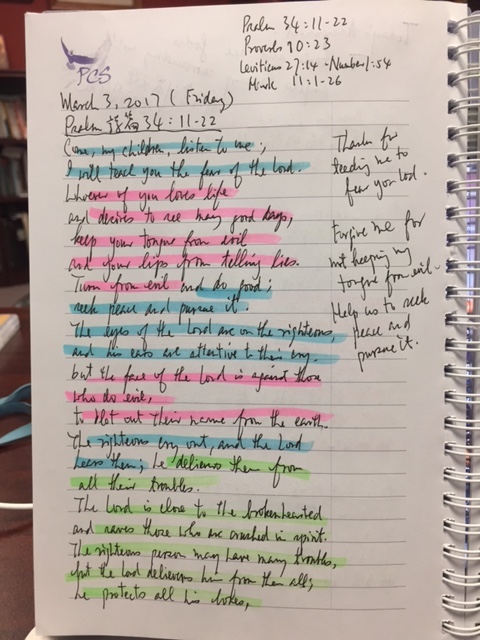 Psalm 34:11-22
Proverbs 10:23
Leviticus 27:14 - Number 1:54
Mark 11:1-26
PCS
March 3, 2017 (Friday)
Psalm 詩篇 34:11-22
Come, my children, listen to me;
I will teach you the fear of the Lord.
Whoever of you loves life
and desires to see many good days,
keep your tongue from evil
and your lips from telling lies.
Turn from evil and do good;
seek peace and pursue it.
The eyes of the Lord are on the righteous,
and his ears are attentive to their cry.
but the face of the Lord is against those
who do evil,
to blot out their name from the earth.
The righteous cry out, and the Lord
hears them; he delivers them from
all their troubles.
The Lord is close to the brokenhearted
and saves those who are crushed in spirit.
The righteous person may have many troubles,
but the Lord delivers him from them all;
he protects all his bones,
Thanks for
leading me to
fear you Lord.
Forgive me for
not keeping my
tongue from evil.
Help us to seek
peace and
pursue it.